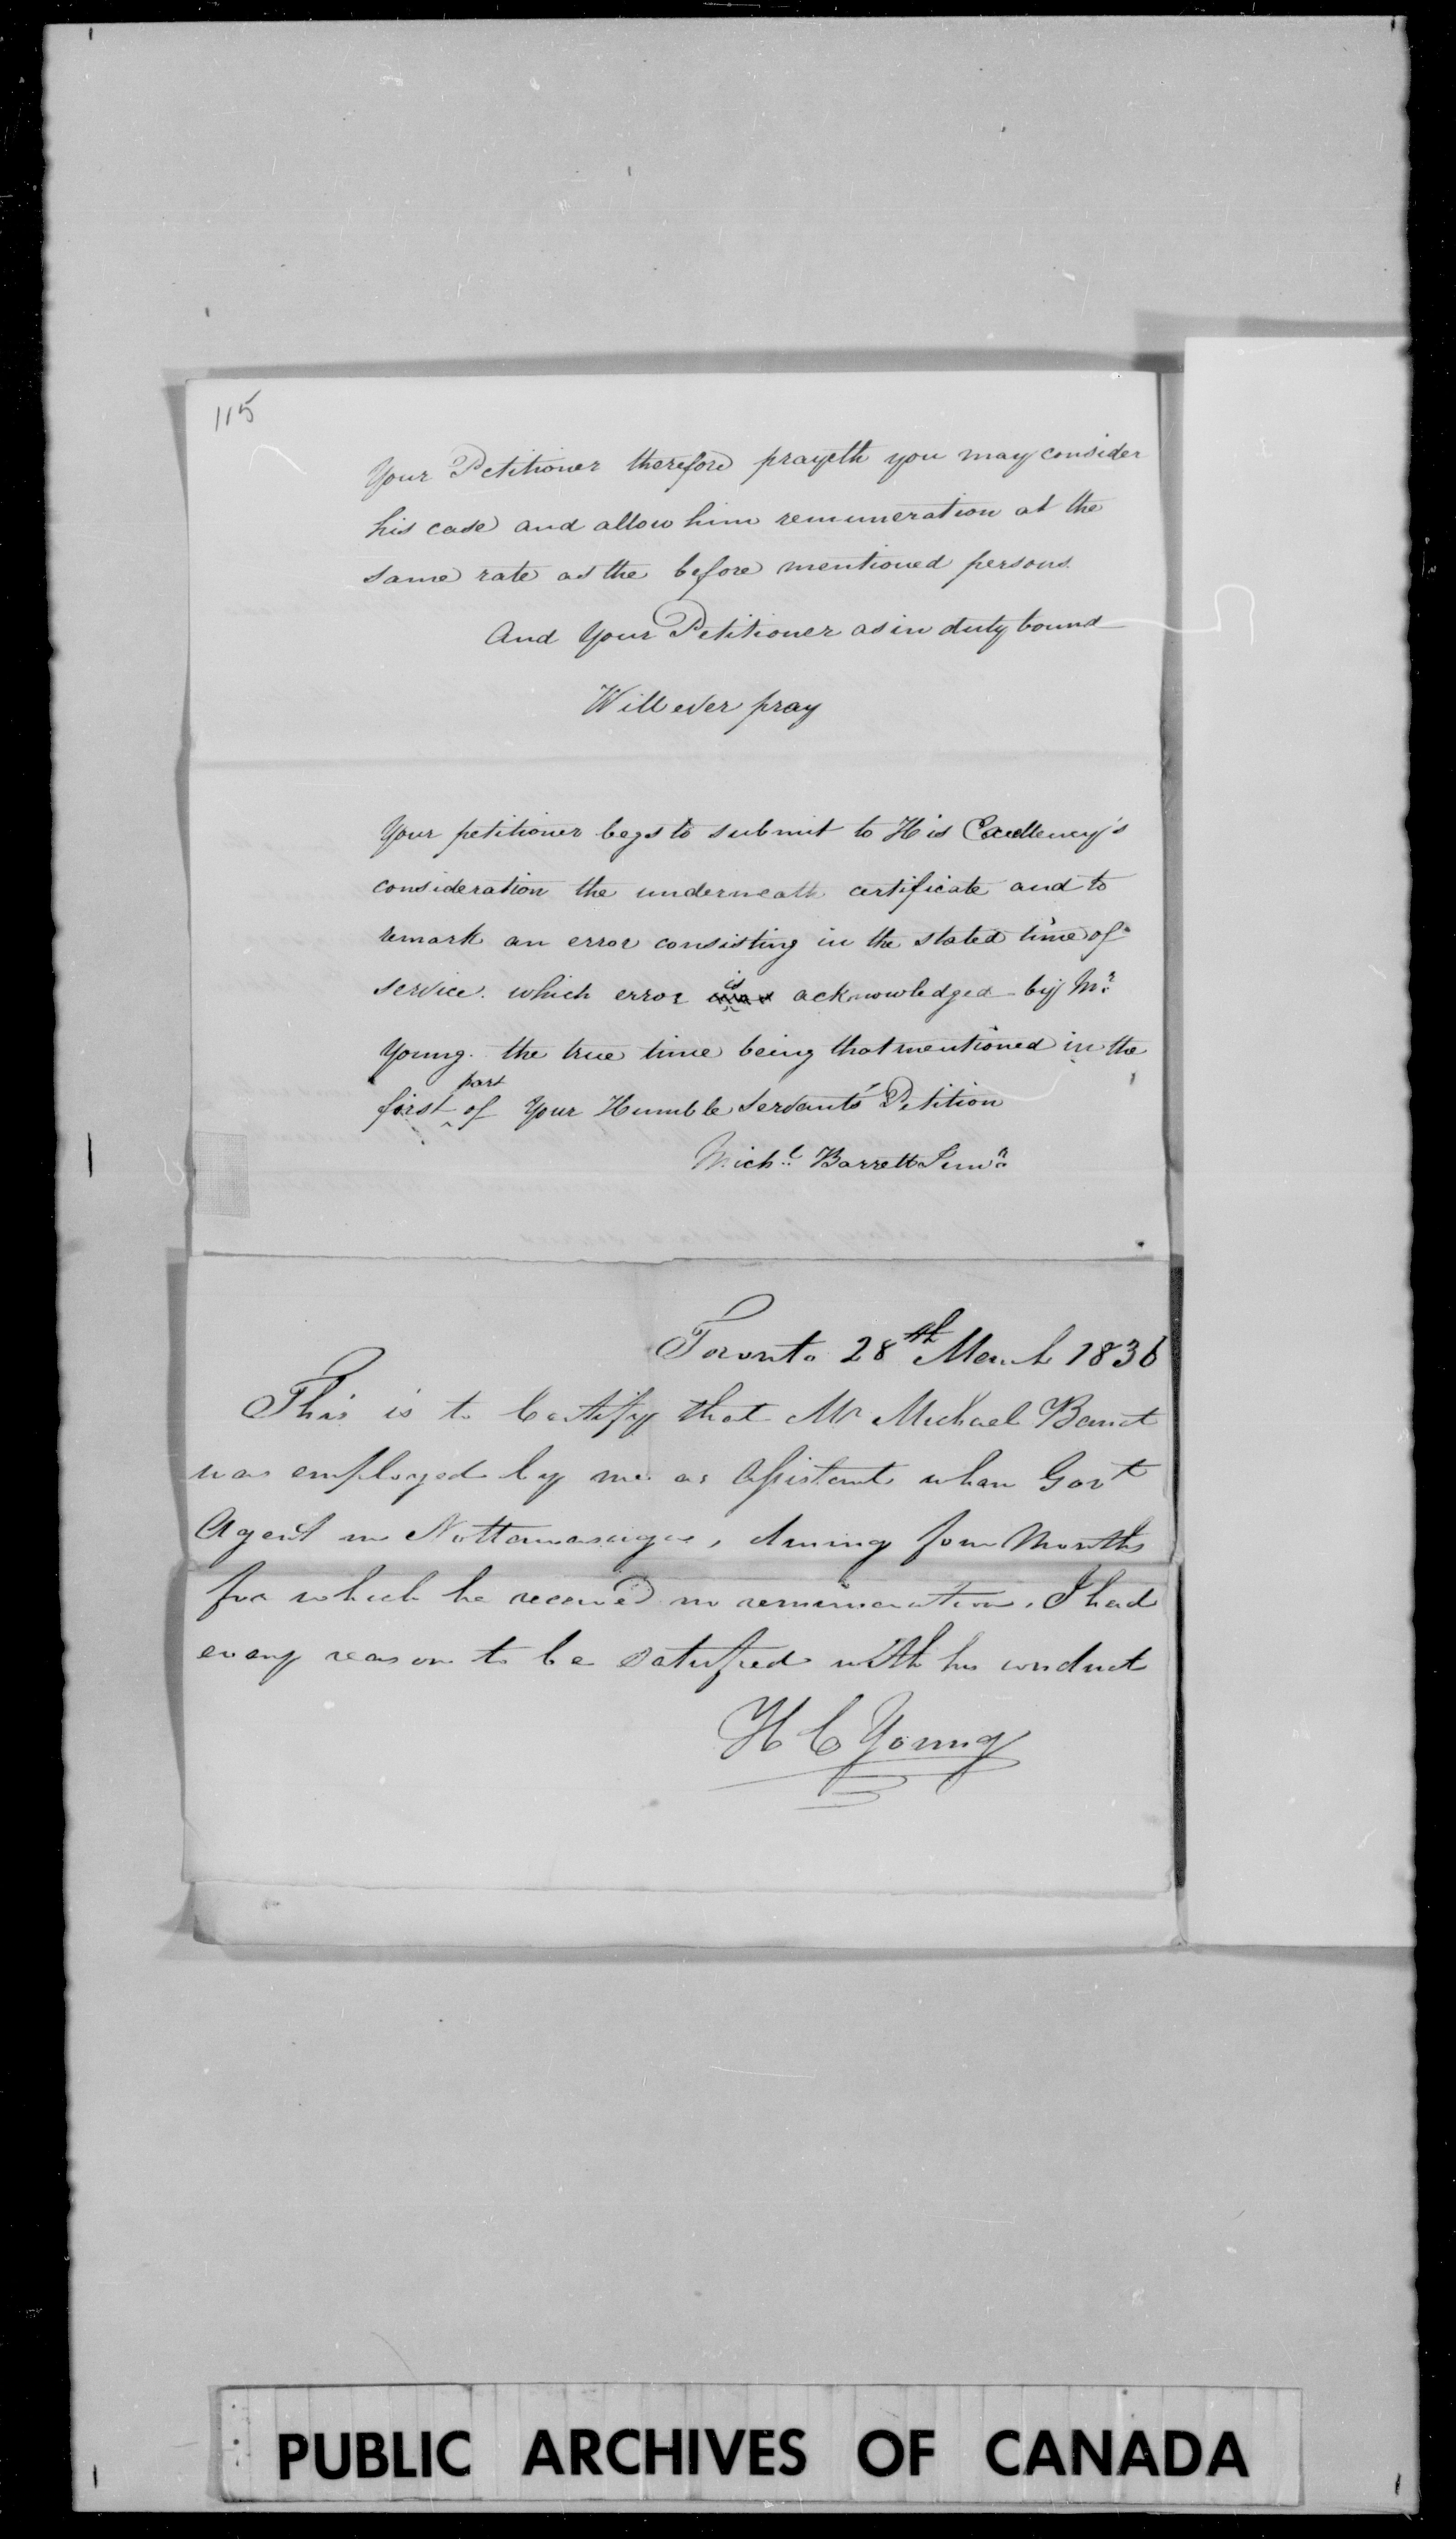 115
Your Petitioner therefore prayeth you may consider
his case and allow him remuneration at the
same rate as the before mentioned persons.
And Your Petitioner as in duty bound
Will ever pray
Your petitioner begs to submit to His Excellency's
consideration the underneath certificate and to
remark an error consisting in the stated time of
service. which error is acknowledged by Mr.
Young. the true time being that mentioned in the
first part of Your Humble Servants' Petition
Michl. Barrett Senr.
Toronto 28th March 1836
This is to Certify that Mr Michael Barret
was employed by me as Assistant when Govt
Agent in Nottawasaga, during four Months
for which he received no remuneration. I had
every reason to be satisfied with his conduct
H C Young
PUBLIC ARCHIVES OF CANADA